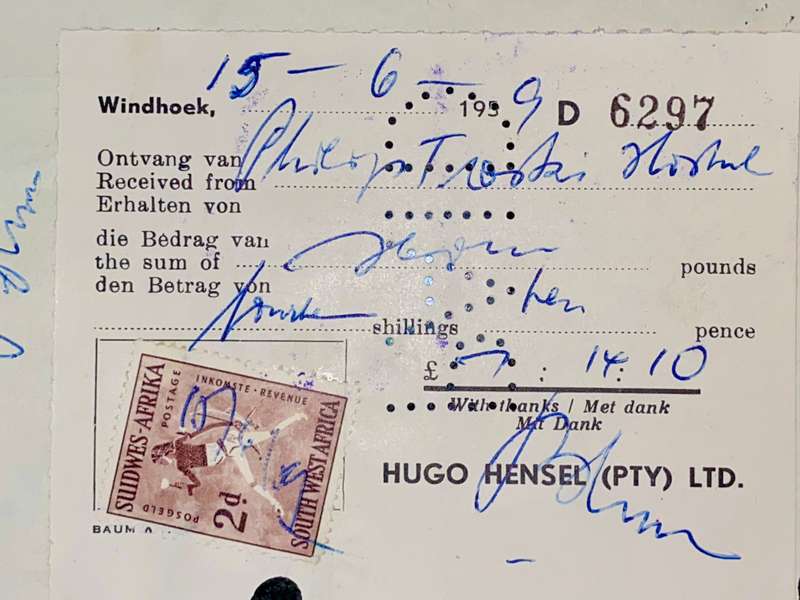 15 - 6 - 
Windhoek, 195 9 D 6297
Ontvang van
Received from Philipp Trotski Hostel
Erhalten von
die Bedrag van
the sum of pounds
den Betrag von
fourteen shillings ten pence
£ 7 : 14 : 10
With thanks / Met dank
Mit Dank
HUGO HENSEL (PTY) LTD.
SUIDWES-AFRIKA
POSTAGE
INKOMSTE · REVENUE
SOUTH WEST AFRICA
POSGELD
2d
BAUM